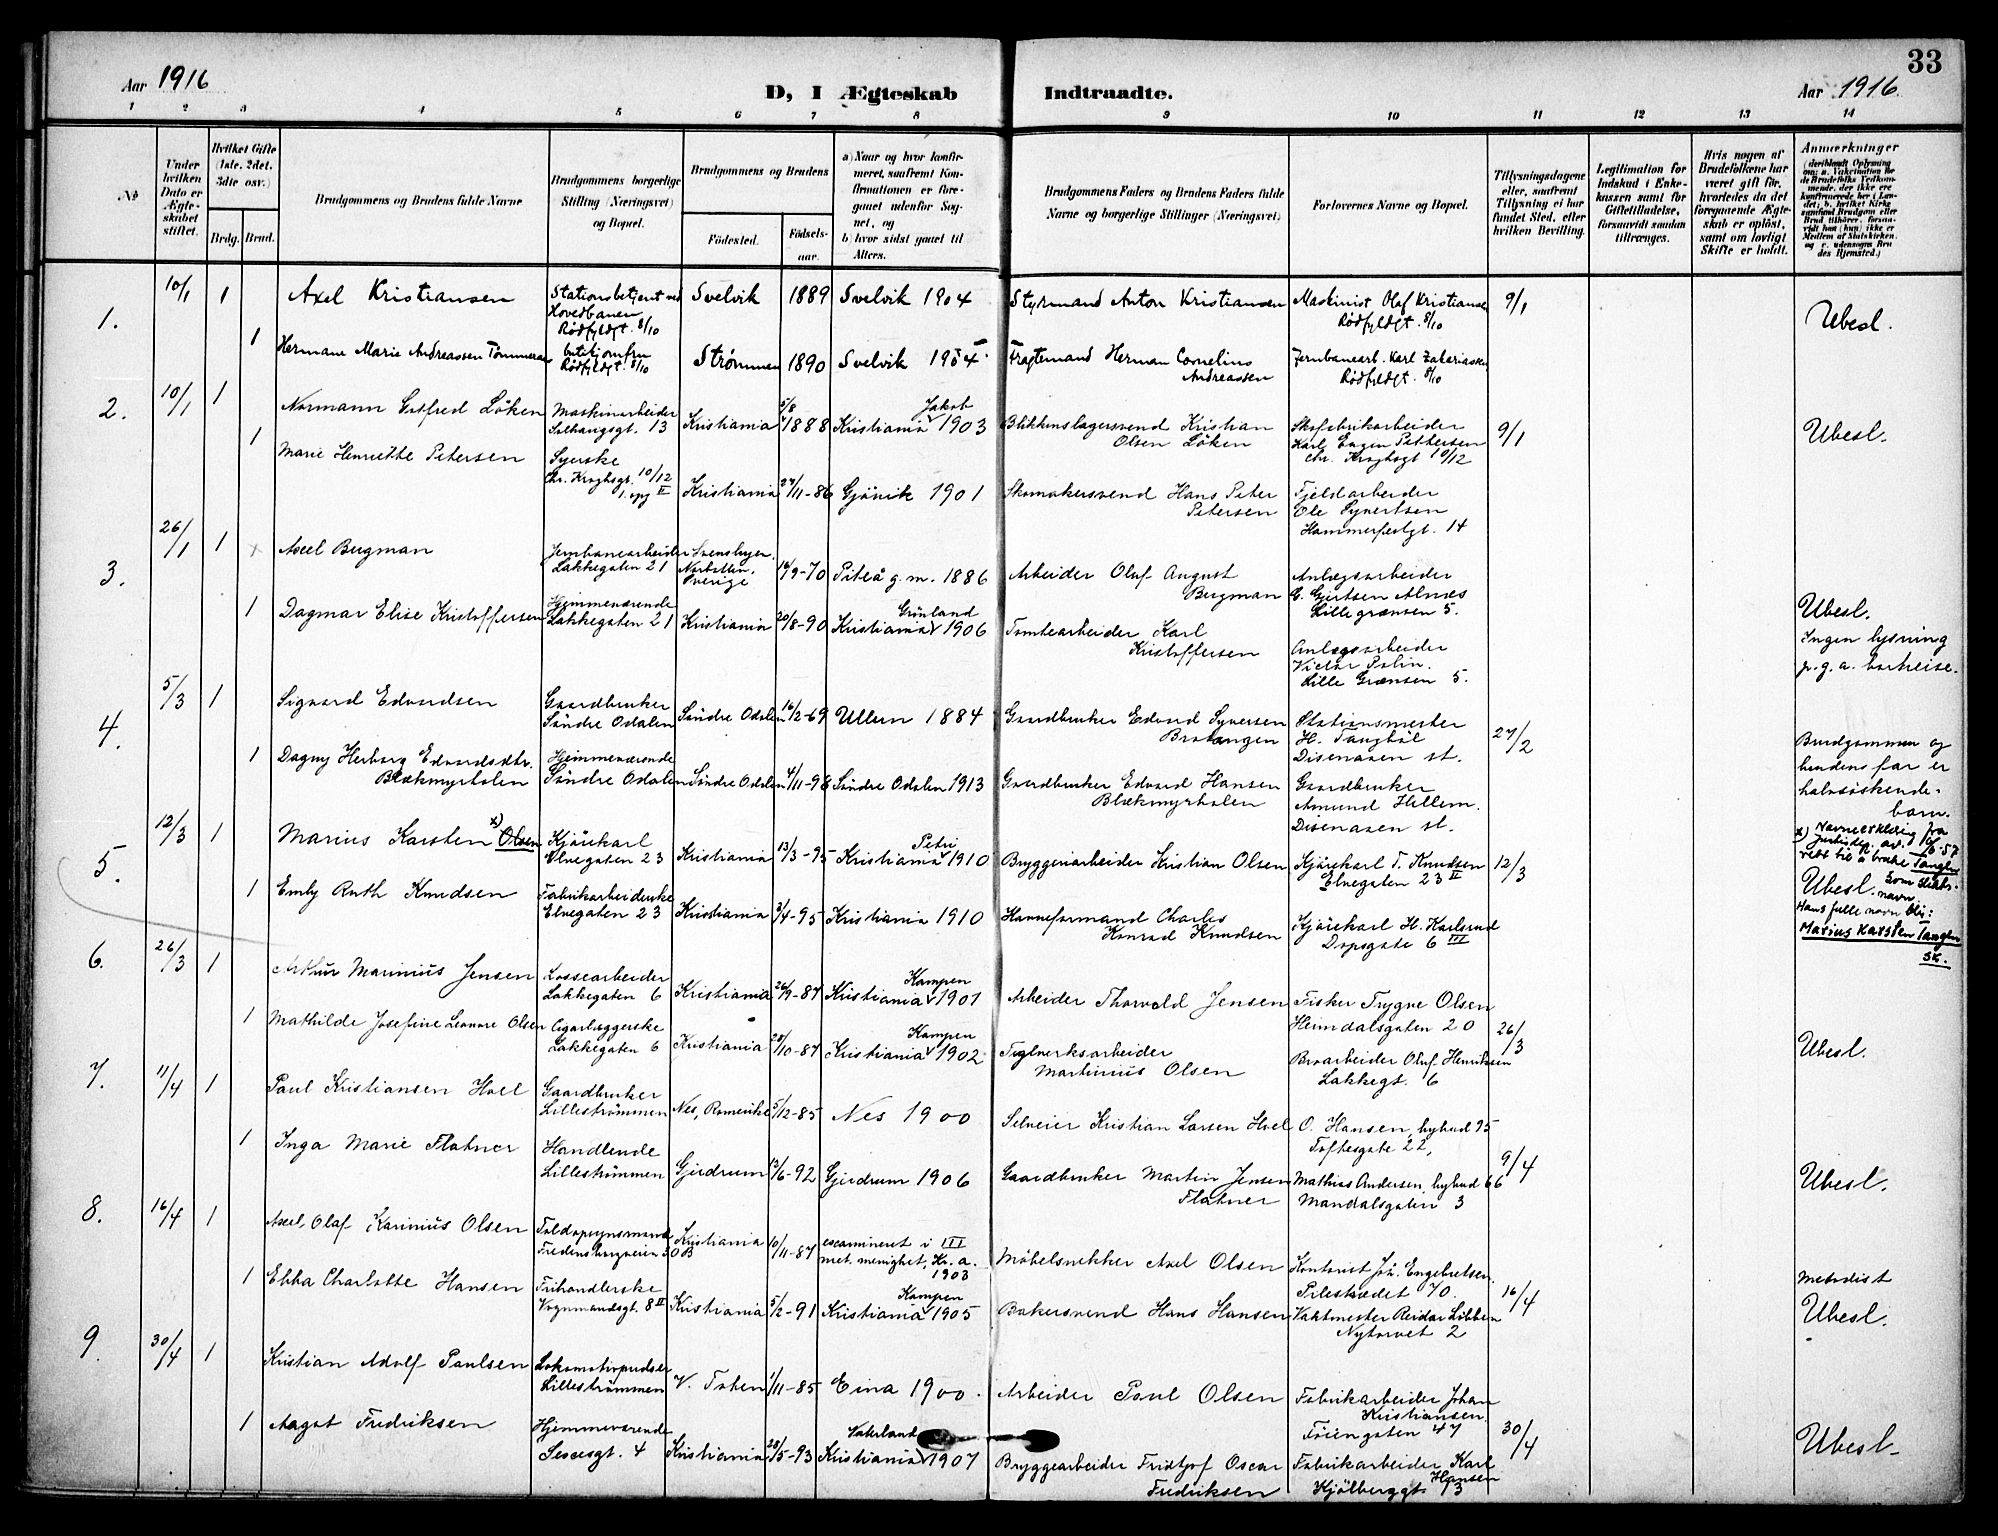 33
Aar 1916
D, I Ægteskab
Indtraadte.
Aar 1916.
1 2 3 4 5 6 7 8 9 10 11 12 13 14
No
Under hvilken Dato er Ægteskabet stiftet.
Hvilket Gifte (1ste, 2det, 3dte osv.)
Brdg. Brud.
Brudgommens og Brudens fulde Navne
Brudgommens borgerlige Stilling (Næringsvei) og Bopæl.
Brudgommens og Brudens
Fødested.
Fødselsaar.
a) Naar og hvor konfirmeret, saafremt Konfirmationen er foregaaet udenfor Sognet, og
b) hvor sidst gaaet til Alters.
Brudgommens Faders og Brudens Faders fulde Navne og borgerlige Stillinger (Næringsvei)
Forlovernes Navne og Bopæl.
Tillysningsdagene eller, saafremt Tillysning ei har fundet Sted, efter hvilken Bevilling.
Legitimation for Indskud i Enkekassen samt for Giftetilladelse, forsaavidt saadan tiltrænges.
Hvis nogen af Brudefolkene har været gift før, hvorledes da det foregaaende Ægteskab er opløst, samt om lovligt Skifte er holdt.
Anmærkninger
(deriblandt Oplysning om: a. Vakcination for de Brudefolks Vedkommende, der ikke ere konfirmerede her i Landet; b. hvilket Kirkesamfund Brudgom eller Brud tilhører, forsaavidt han (hun) ikke er Medlem af Statskirken, og c. udensogns Brudes Hjemsted.)
1. 10/1 1 Axel Kristiansen
Stationsbetjent ved Hovedbanen
Rødfyldgt. 8/10
Svelvik 1889 Svelvik 1904
Styrmand Anton Kristiansen
Maskinist Olaf Kristiansen
Rødfyldgt. 8/10
9/1
Ubesl.
1 Hermane Marie Andreassen Tømmeraas
butikjomfru
Rødfyldgt. 8/10
Strømmen 1890 Svelvik 1904.
Fragtemand Herman Cornelius Andreassen
Jernbanearb. Karl Zakariassen
Rødfyldgt. 8/10
2. 10/1 1 Normann Gotfred Løken
Maskinarbeider
Kristiania 5/8 1888 Kristiania Jakob 1903
Blikkenslagersvend Kristian Olsen Løken
Skofabrikarbeider
Karl Eugen Pettersen
Chr. Kroghsgt 10/12
9/1
Ubesl.
1 Marie Henriette Petersen
Syerske
Chr. Kroghsgt. 10/12
1. opg II
Kristiania 27/11-86 Gjøvik 1901
Skomakersvend Hans Peter Petersen
Fjeldarbeider
Ole Syvertsen
Hammerfestgt. 14
3. 26/1 1 Axel Bergman
Jernbanearbeider
Lakkegaten 21
Svensbyen, Norbotten, Sverige
16/9-70 Piteå g.m. 1886
Arbeider Oluf August Bergman
Anlægsarbeider
G. Gjertsen Alnæs
Lille grænsen 5.
1 Dagmar Elise Kristoffersen
Hjemmeværende
Lakkegaten 21
Kristiania 20/8-90 Kristiania Grønland 1906
Tomtearbeider Karl Kristoffersen
Anlægsarbeider
Victor Palin.
Lille Grænsen 5.
Ubesl.
Ingen lysning
p.g.a. bortreise.
4. 5/3 1 Sigvard Edvardsen
Gaardbruker
Søndre Odalen
Søndre Odalen 16/2-69 Ullern 1884
Gaardbruker Edvard Syversen Bratangen
Stationsmester
H. Tangbøl
Disenaaen st.
27/2
1 Dagny Herborg Edvardsdtr. Blækmyrholen
Hjemmeværende
Søndre Odalen
Søndre Odalen 4/11-98 Søndre Odalen 1913
Gaardbruker Edvard Hansen Blækmyrholen
Gaardbruker
Amund Hillem.
Disenaaen st.
Brudgommen og
brudens far er
halvsøskende-
barn.
5. 12/3 1 Marius Karsten x) Olsen
Kjørekarl
Elvegaten 23
Kristiania 13/3-95 Kristiania Petri 1910
Bryggeriarbeider Kristian Olsen
Kjørekarl T. Knudsen
Elvegaten 23 II
12/3
x) Navneerklæring fra
Justisdep. av
rett til å bruke Tangen
som slekts-
navn.
Ubesl.
Hans fulle navn blir:
Marius Karsten Tangen
SK.
1 Emly Ruth Knudsen
Fabrikarbeiderske
Elvegaten 23
Kristiania 3/4-95 Kristiania 1910
Havneformand Charles Konrad Knudsen
Kjørekarl H. Karlsrud
Dopsgate 6 III
6. 26/3 1 Arthur Marinius Jensen
Lossearbeider
Lakkegaten 6
Kristiania 26/9-87 Kristiania Kampen 1901
Arbeider Thorvald Jensen
Fisker Trygve Olsen
Heimdalsgaten 20
26/3
1 Mathilde Josefine Leonore Olsen
Cigarlæggerske
Lakkegaten 6
Kristiania 28/10-87 Kristiania Kampen 1902
Teglverksarbeider Martinius Olsen
Broarbeider Oluf Henriksen
Lakkegt. 6
Ubesl.
7. 11/4 1 Paul Kristiansen Hvel
Gaardbruker
Lillestrømmen
Nes, Romerike 5/12-85 Nes 1900
Selveier Kristian Larsen Hvel
O. Hansen, bybud 95
Toftesgate 22,
9/4
1 Inga Marie Flatner
Handlende
Lillestrømmen
Gjerdrum 13/6-92 Gjerdrum 1906
Gaardbruker Martin Jensen Flatner
Mathias Andersen, bybud 66
Mandalsgaten 3
Ubesl.
8. 16/4 1 Axel Olaf Karinius Olsen
Toldopsynsmand
Fredensborgveien 30 B
Kristiania 10/11-87 examineret i III
met. menighet, Kr.a.
1903
Møbelsnekker Axel Olsen
Kontorist Joh. Engebretsen.
Pilestrædet 70.
16/4
1 Ebba Charlotte Hansen
Frihandlerske
Vognmandsgt. 8 II
Kristiania 5/2-91 Kristiania Kampen 1905
Bakersvend Hans Hansen
Vaktmester Reidar Libben
Nytorvet 2
Metodist
Ubesl.
9. 30/4 1 Kristian Adolf Paulsen
Lokomotivpudser
Lillestrømmen
V. Toten 1/11-85 Eina 1900.
Arbeider Paul Olsen
Fabrikarbeider Johan Kristiansen.
Tøiengaten 47
30/4
1 Aagot Fredriksen
Hjemmeværende
Kristiania 28/5-93 Kristiania Vaterland 1907
Bryggearbeider Fridtjof Oscar Fredriksen
Fabrikarbeider Karl Hansen
Kjølberggt. 13
Ubesl.